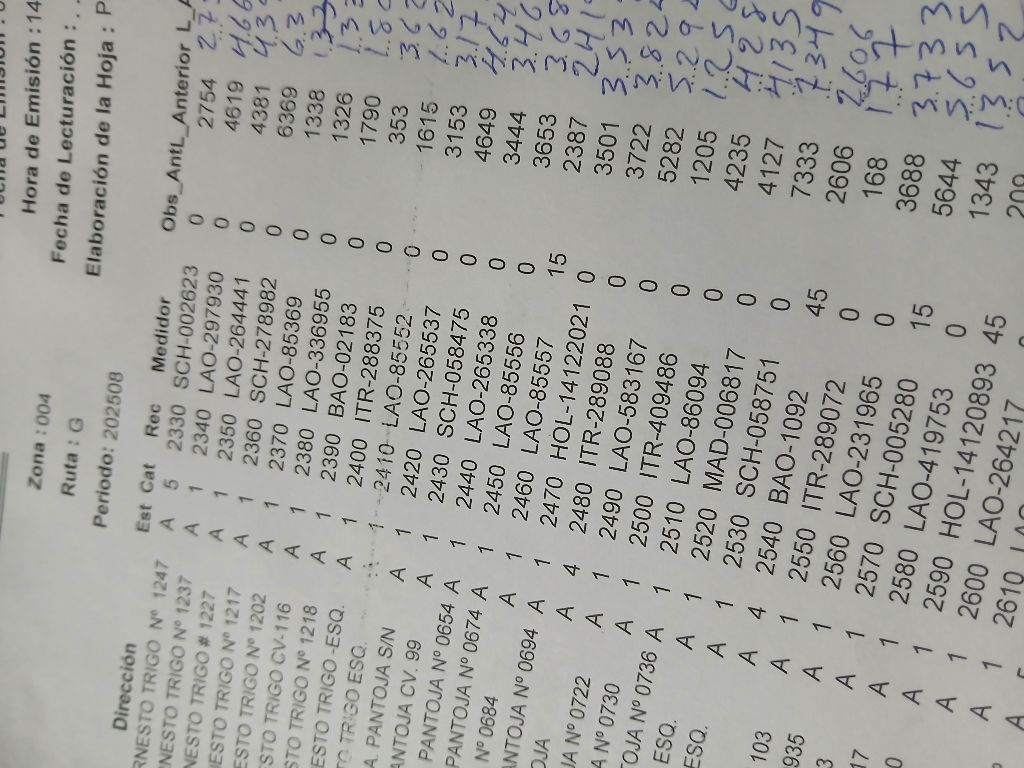 Hora de Emisión : 14
Fecha de Lecturación : .
Zona : 004
Elaboración de la Hoja : P
Ruta : G
Periodo: 202508
Dirección Est Cat Rec Medidor Obs_AntL_Anterior L_A
RNESTO TRIGO Nº 1247 A 5 2330 SCH-002623 0 2754
NESTO TRIGO Nº 1237 A 1 2340 LAO-297930 0 4619
NESTO TRIGO # 1227 A 1 2350 LAO-264441 0 4381
NESTO TRIGO Nº 1217 A 1 2360 SCH-278982 0 6369
ESTO TRIGO Nº 1202 A 1 2370 LAO-85369 0 1338
STO TRIGO CV-116 A 1 2380 LAO-336955 0 1326
STO TRIGO Nº 1218 A 1 2390 BAO-02183 0 1790
ESTO TRIGO -ESQ. A 1 2400 ITR-288375 0 353
TO TRIGO ESQ. 1 2410 LAO-85552 0 1615
A. PANTOJA S/N A 1 2420 LAO-265537 0 3153
ANTOJA CV. 99 A 1 2430 SCH-058475 0 4649
PANTOJA Nº 0654 A 1 2440 LAO-265338 0 3444
PANTOJA Nº 0674 A 1 2450 LAO-85556 0 3653
Nº 0684 A 1 2460 LAO-85557 15 2387
ANTOJA Nº 0694 A 1 2470 HOL-14122021 0 3501 3.533
OJA A 4 2480 ITR-289088 0 3722 3.822
JA Nº 0722 A 1 2490 LAO-583167 0 5282 5.292
A Nº 0730 A 1 2500 ITR-409486 0 1205 1.256
TOJA Nº 0736 A 1 2510 LAO-86094 0 4235 4285
ESQ. A 1 2520 MAD-006817 0 4127 4135
ESQ. A 1 2530 SCH-058751 0 7333 7349
A 4 2540 BAO-1092 45 2606 2606
103 A 1 2550 ITR-289072 0 168 177
935 A 1 2560 LAO-231965 0 3688 3.733
A 1 2570 SCH-005280 15 5644 5655
17 A 1 2580 LAO-419753 0 1343 1352
A 1 2590 HOL-14120893 45 209
2600 LAO-264217
2610